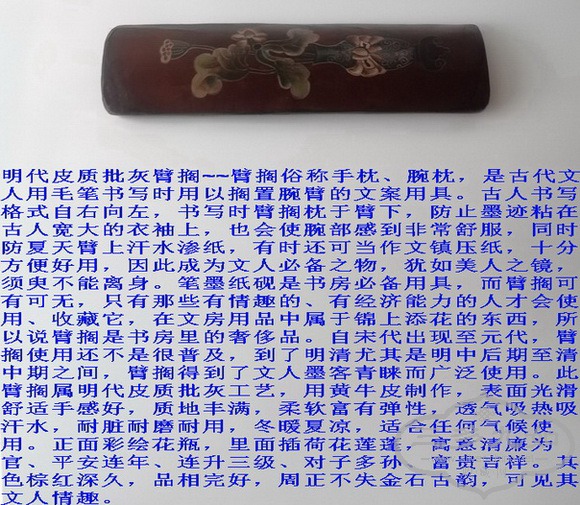 明代皮质批灰臂搁~~臂搁俗称手枕、腕枕，是古代文
人用毛笔书写时用以搁置腕臂的文案用具。古人书写
格式自右向左，书写时臂搁枕于臂下，防止墨迹粘在
古人宽大的衣袖上，也会使腕部感到非常舒服，同时
防夏天臂上汗水渗纸，有时还可当作文镇压纸，十分
方便好用，因此成为文人必备之物，犹如美人之镜，
须臾不能离身。笔墨纸砚是书房必备用具，而臂搁可
有可无，只有那些有情趣的、有经济能力的人才会使
用、收藏它，在文房用品中属于锦上添花的东西，所
以说臂搁是书房里的奢侈品。自宋代出现至元代，臂
搁使用还不是很普及，到了明清尤其是明中后期至清
中期之间，臂搁得到了文人墨客青睐而广泛使用。此
臂搁属明代皮质批灰工艺，用黄牛皮制作，表面光滑
舒适手感好，质地丰满，柔软富有弹性，透气吸热吸
汗水，耐脏耐磨耐用，冬暖夏凉，适合任何气候使
用。正面彩绘花瓶，里面插荷花莲蓬，寓意清廉为
官、平安连年、连升三级、对子多孙、富贵吉祥。其
色棕红深久，品相完好，周正不失金石古韵，可见其
文人情趣。